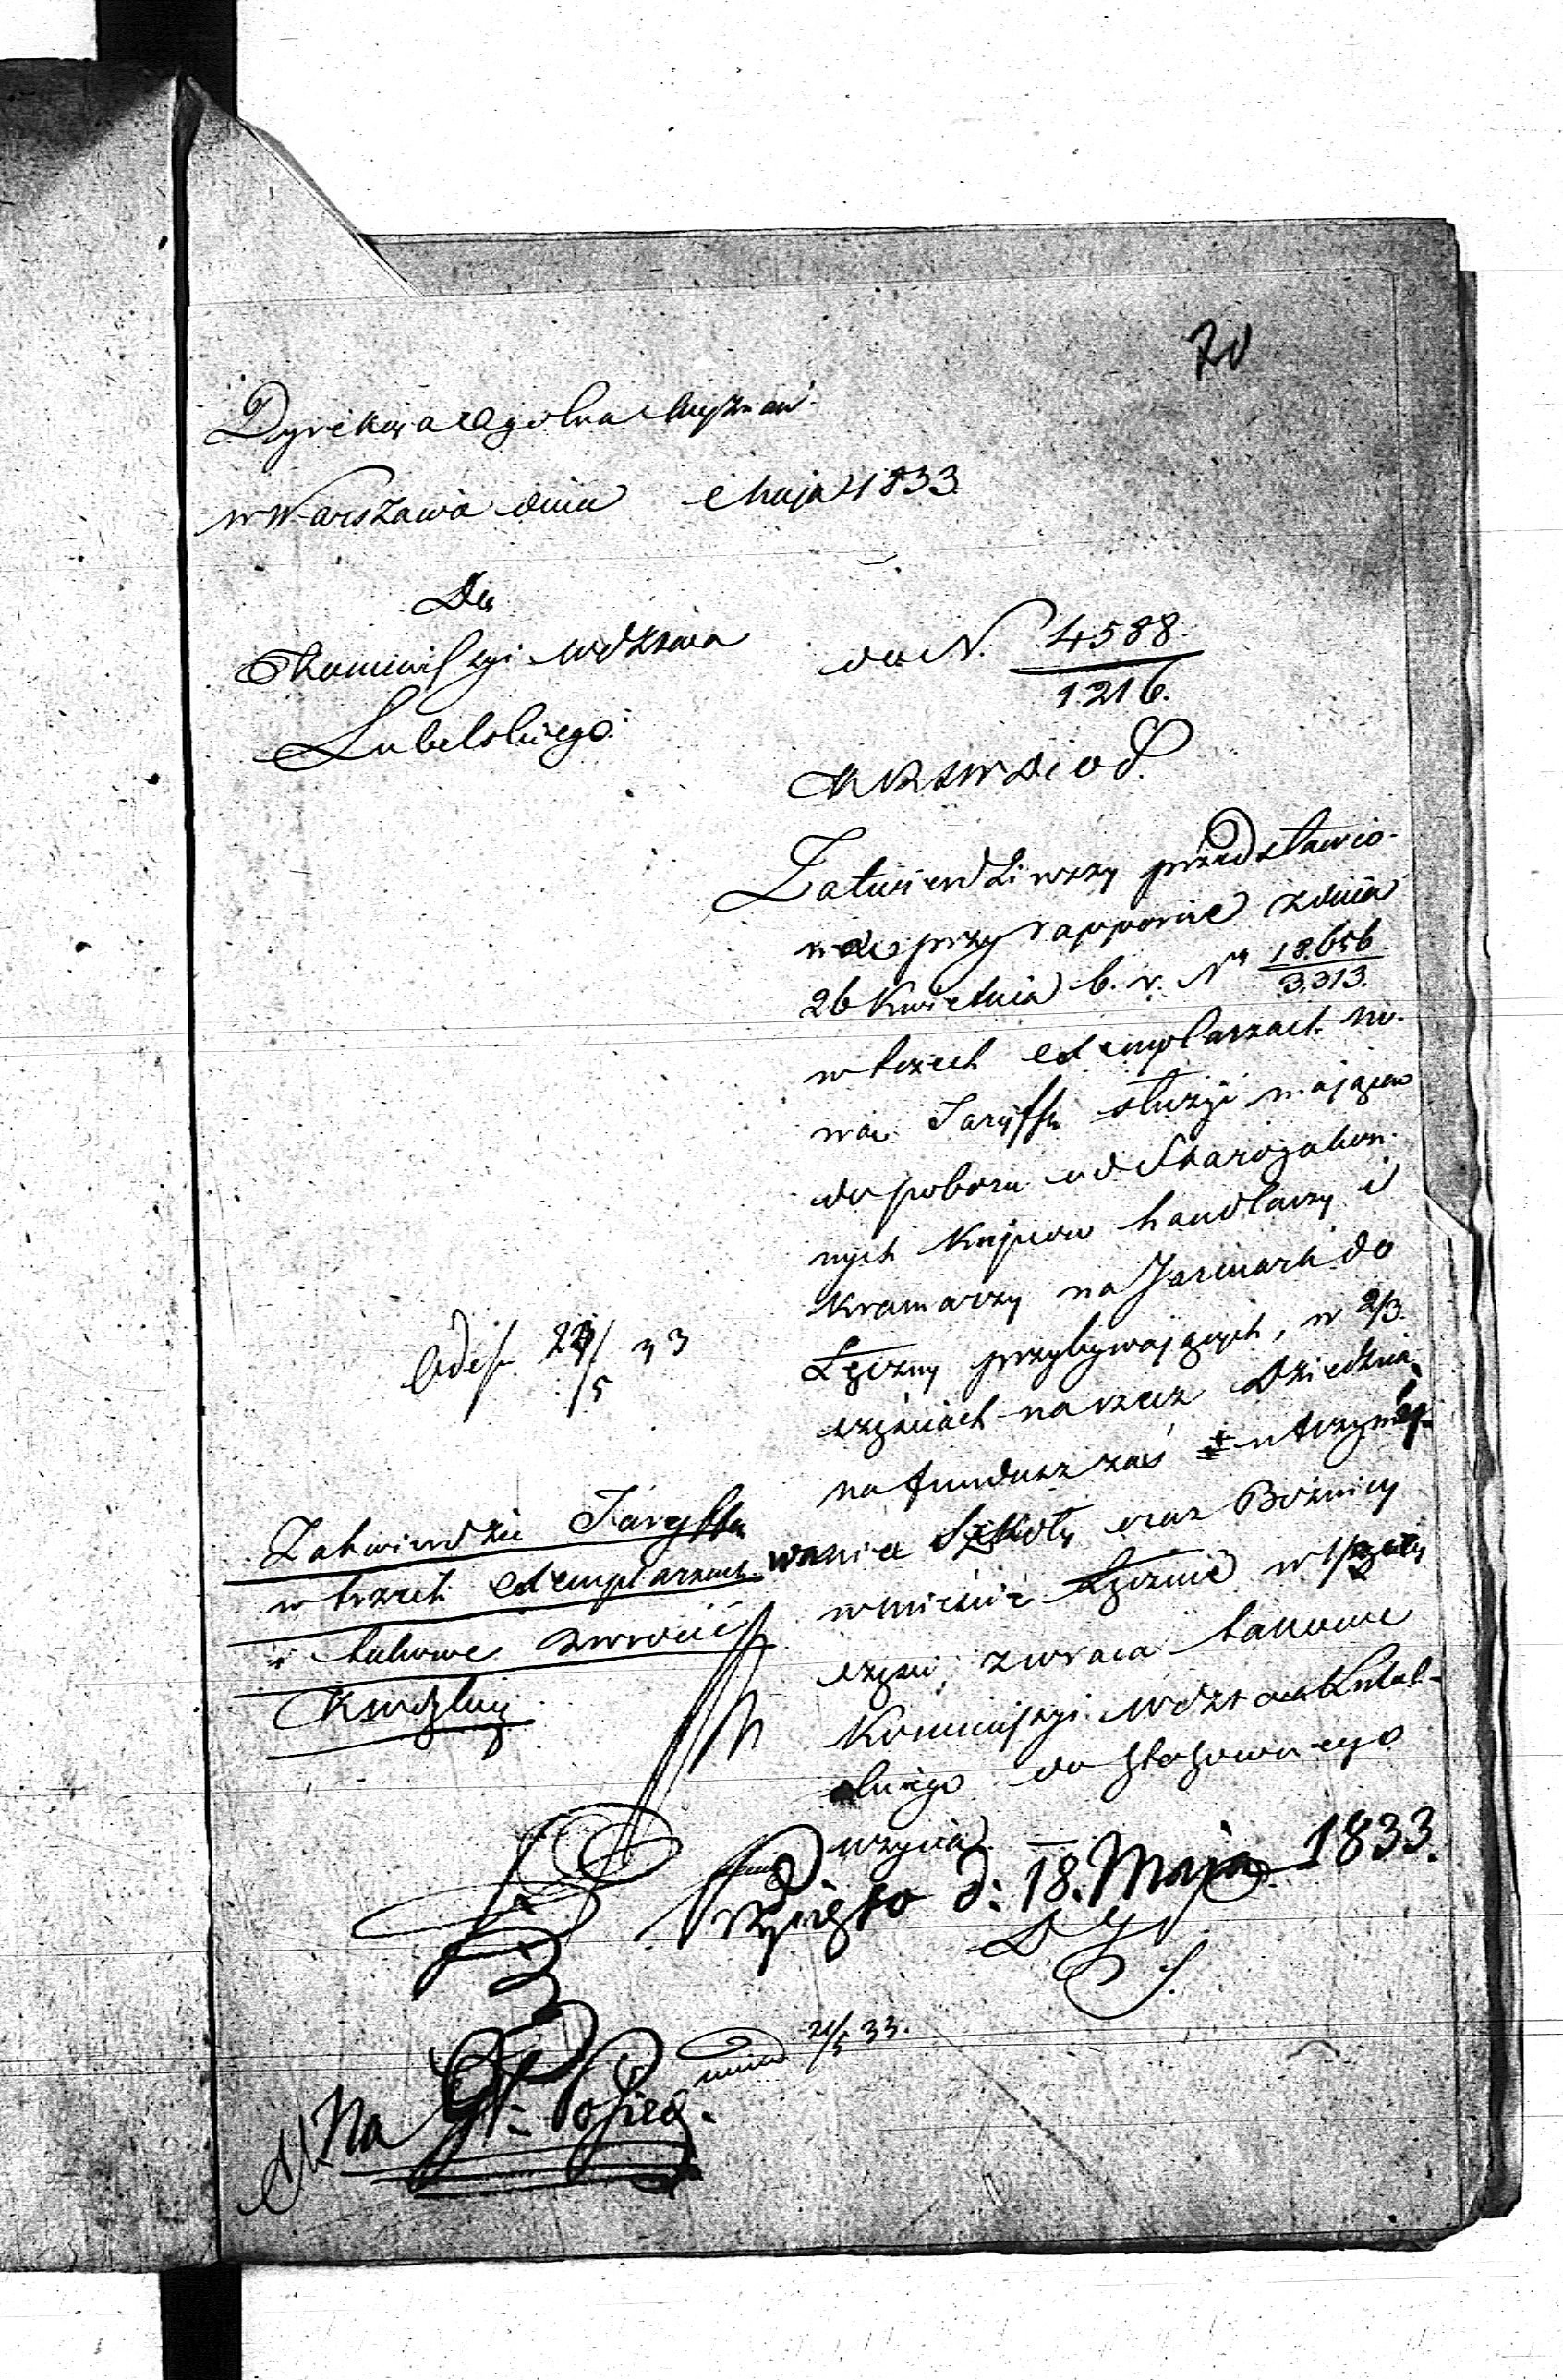 70
Dyrekcya Ogólna Wyznań
w Warszawie dnia Maja 1833
Do
Kommissyi Wdztwa
Lubelskiego
do N. 4588.
1216.
Zatwierdziwszy przedstawio-
ne przy rapporcie z dnia
26 Kwietnia b. r. Nr 18.656
3.313.
w trzech exemplarzach no-
wą Taryffę służyć mającą
do poboru od Starozakon-
nych Kupców handlarzy i
Kramarzy na Jarmark do
Łęczny przybywających, w 2/3
częściach na rzecz Dziedzica,
na fundusz zaś utrzymy-
wania Szkoły oraz Bóżnicy
w mieście Łęcznie w 1/3
części, zwraca takowe
Kommissyi Wdztwa Lubel-
skiego do stosownego
użycia.
Odesł. 23/5 33
Zatwierdzić Taryffę
w trzech exemplarzach
i takowe zwrócić
Przyjęto d: 18. Maja 1833.
D G
21/5 33.
Na St: Posied.